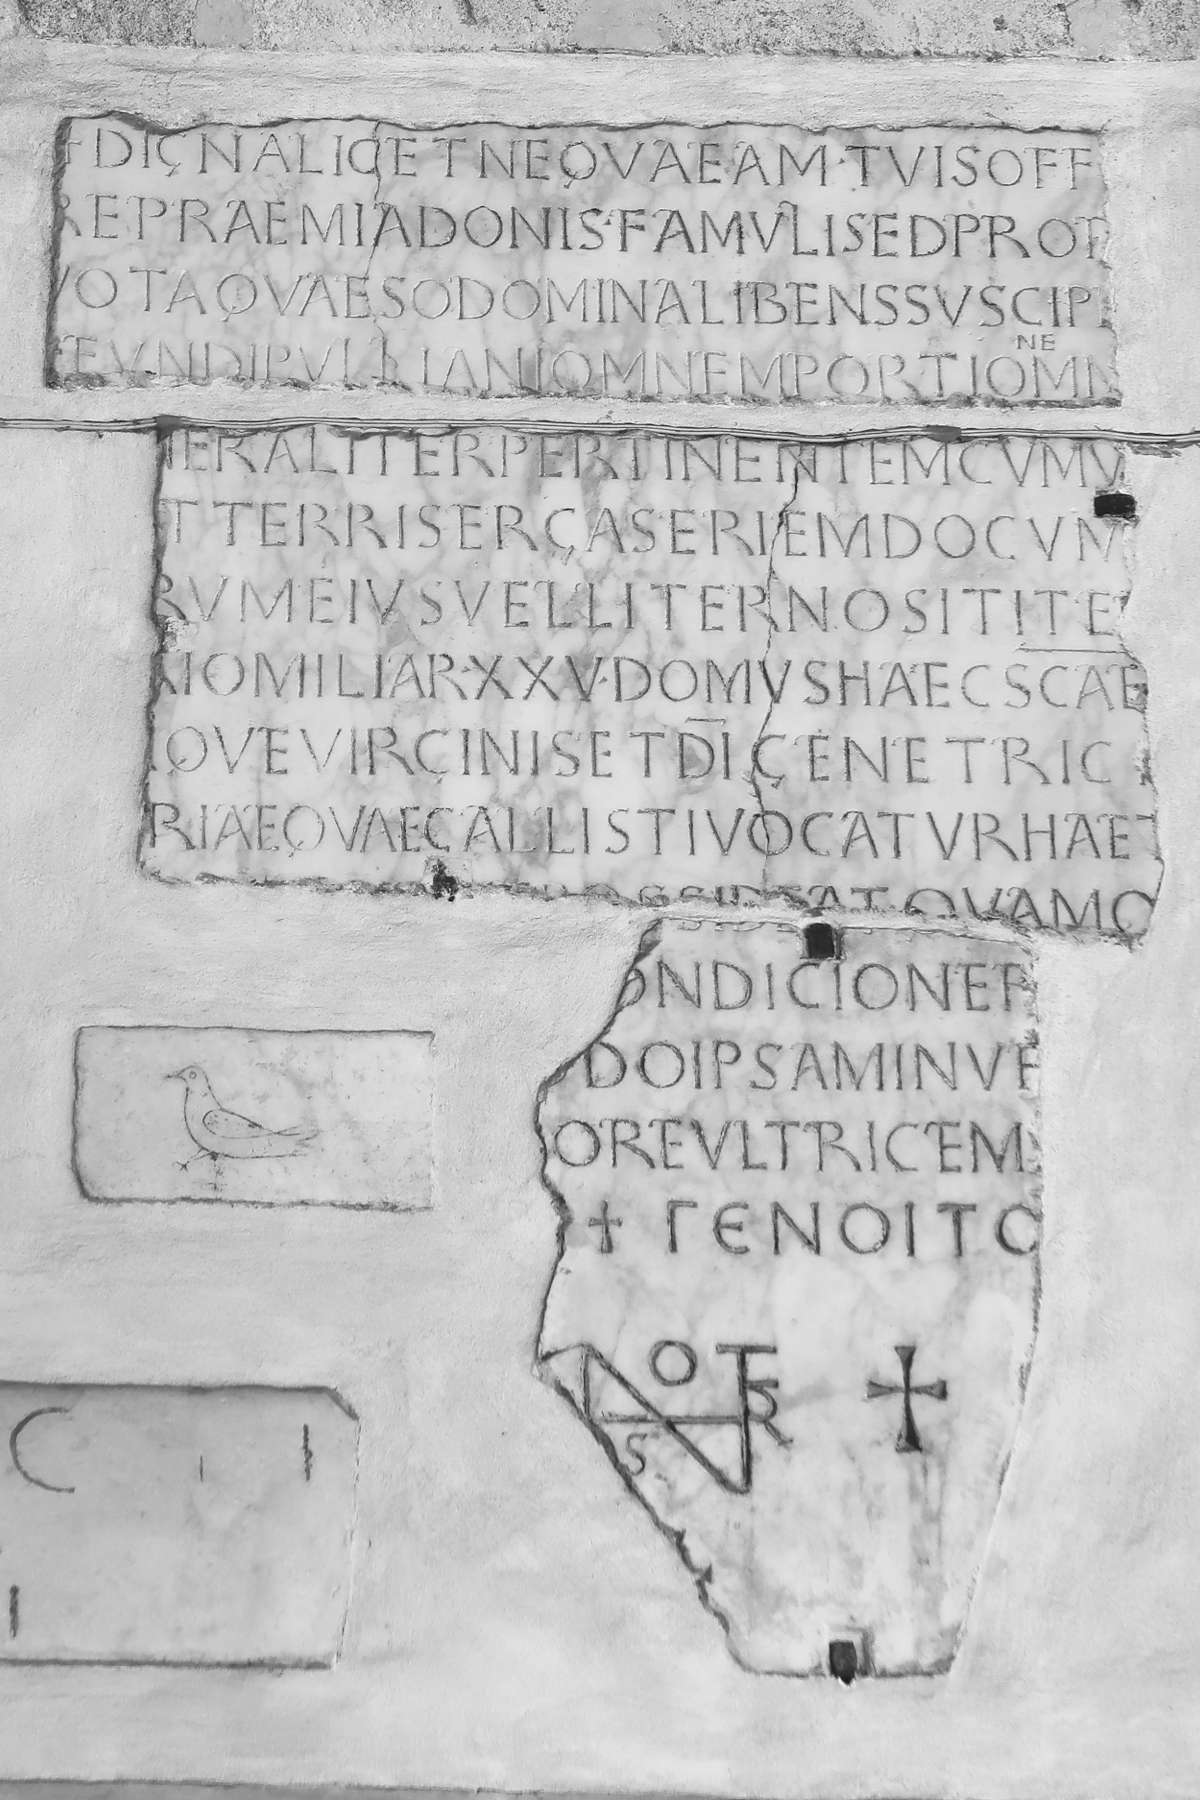 DIGNALICETNEQVAEAM·TVISOFF
REPRAEMIADONIS·FAMVLISEDPROT
VOTAQVAESODOMINALIBENSSVSCIP
NE
EVNDIPVLLIANIOMNEMPORTIOMN
NERALITERPERTINENTEMCVMV
TTERRISERGASERIEMDOCVM
RVMEIVSVELLITERNOSITITE
RIOMILIAR·XXV·DOMVSHAECSCAE
QVEVIRGINISETDIGENETRIC
RIAEQVAEGALLISTIVOCATVRHAE
TATQVAMC
ONDICIONER
DOIPSAMINVE
OREVLTRICEM
+ ΓЄNOITO
N O T E R S +
C I I
I